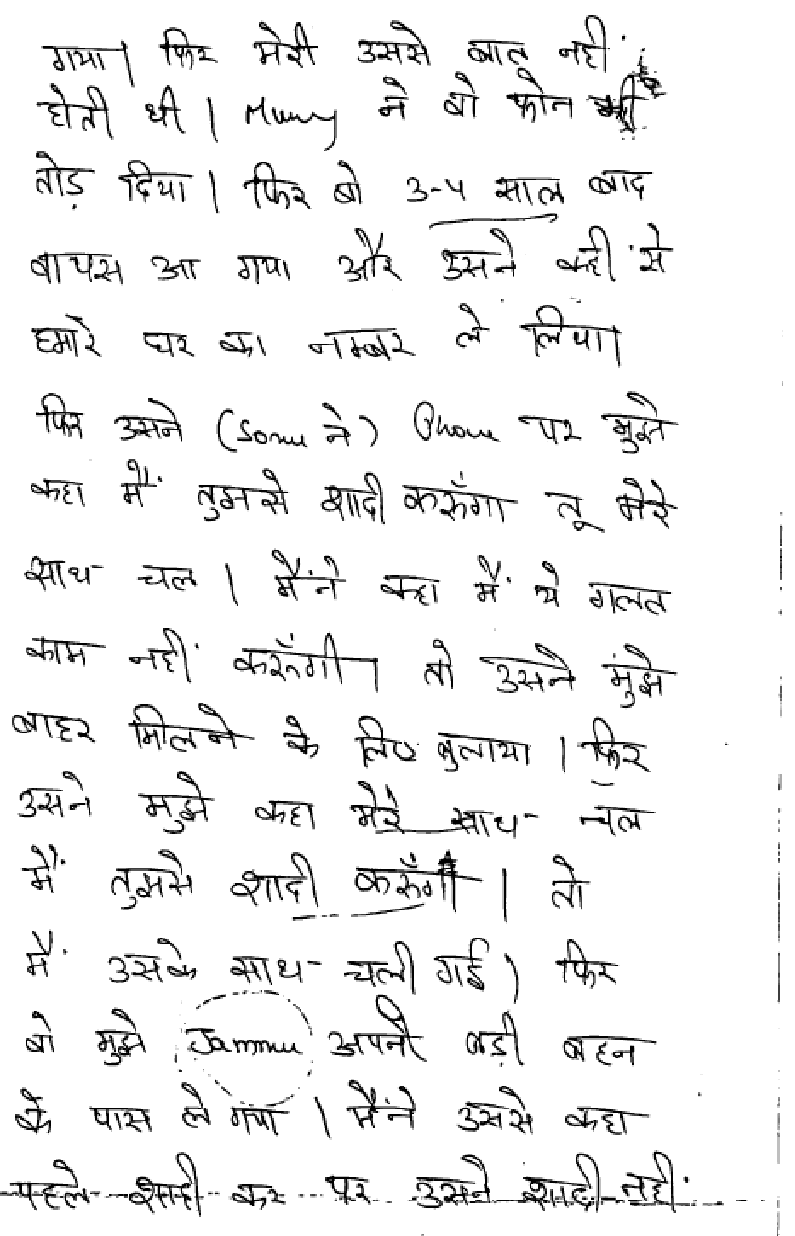 गया। फिर मेरी उससे बात नहीं
होती थी। Mummy ने वो फोन भी
तोड़ दिया। फिर वो 3-4 साल बाद
वापस आ गया और उसने कहीं से
हमारे घर का नम्बर ले लिया।
फिर उसने (Sonu ने) Phone पर मुझे
कहा मैं तुमसे शादी करूँगा तू मेरे
साथ चल। मैंने कहा मैं ये गलत
काम नहीं करूँगी। तो उसने मुझे
बाहर मिलने के लिए बुलाया। फिर
उसने मुझे कहा मेरे साथ चल
मैं तुमसे शादी करूँगा। तो
मैं उसके साथ चली गई। फिर
वो मुझे Jammu अपनी बड़ी बहन
के पास ले गया। मैंने उससे कहा
पहले शादी कर पर उसने शादी नहीं